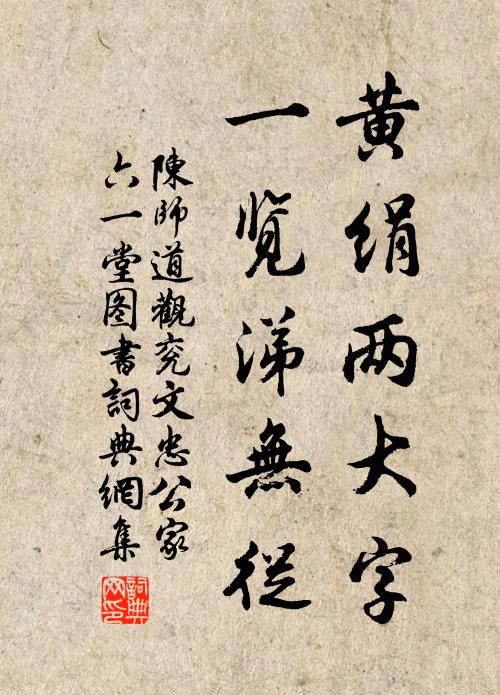 黄絹两大字
一覽涕無從
陳師道觀兖文忠公家
六一堂图書詞典網集
詞典网印